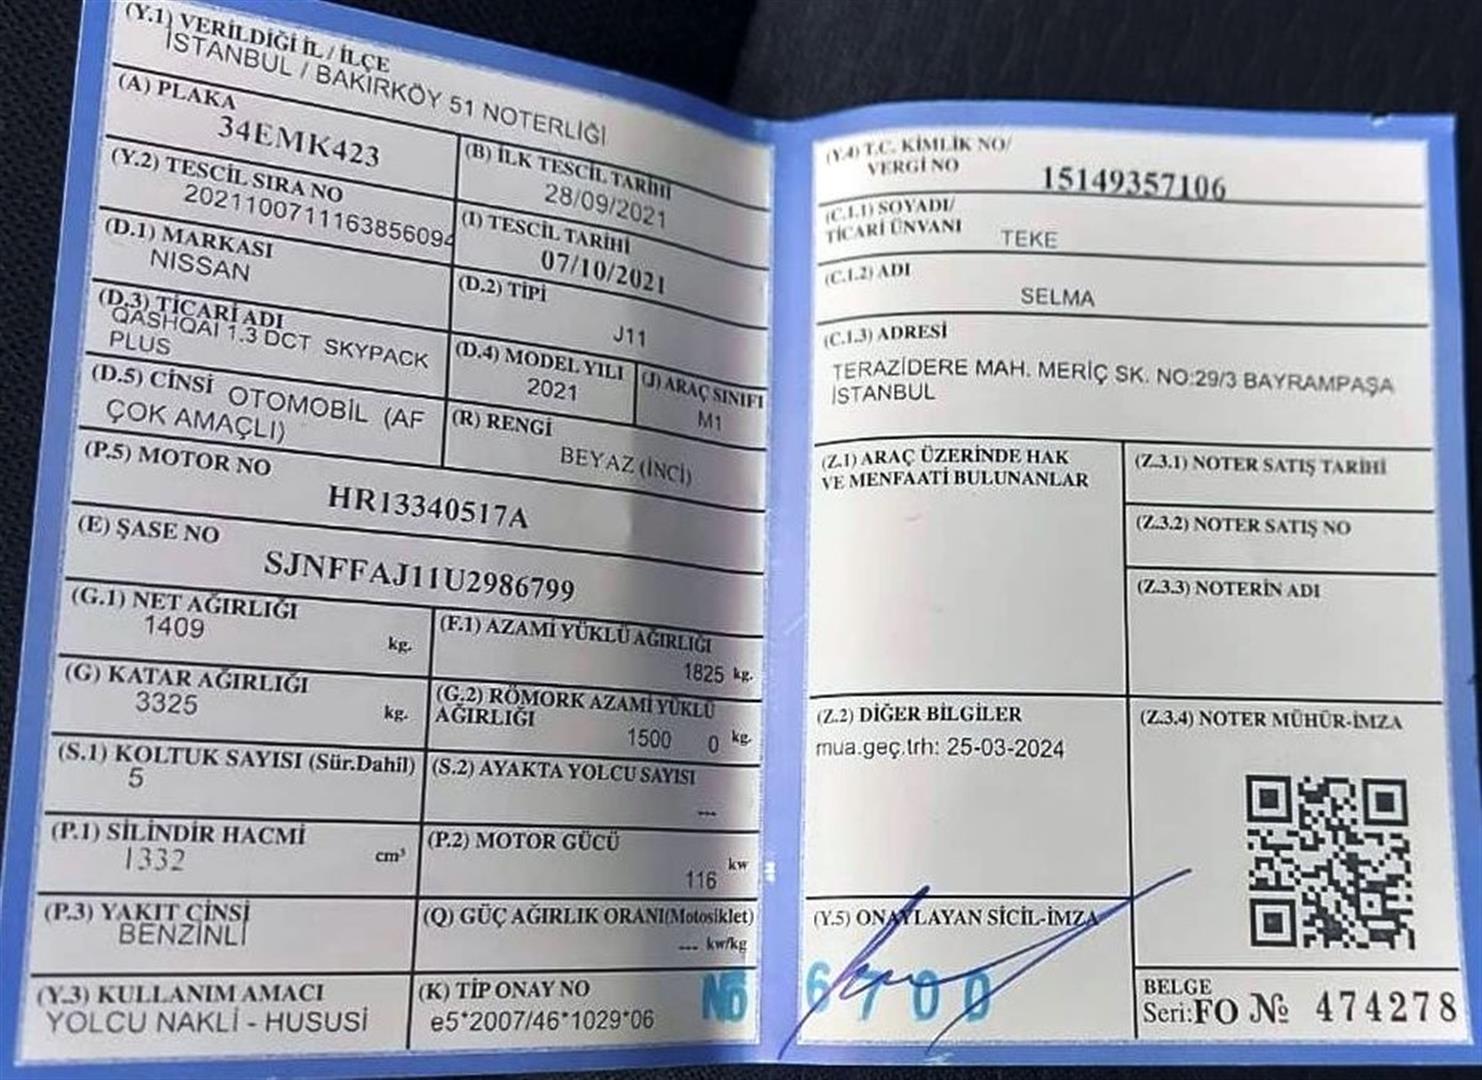 (Y.1) VERİLDİĞİ İL / İLÇE
İSTANBUL / BAKIRKÖY 51 NOTERLİĞİ
(A) PLAKA
34EMK423
(B) İLK TESCİL TARİHİ
28/09/2021
(Y.2) TESCİL SIRA NO
2021100711163856094
(I) TESCİL TARİHİ
07/10/2021
(D.1) MARKASI
NISSAN
(D.2) TİPİ
J11
(D.3) TİCARİ ADI
QASHQAI 1.3 DCT SKYPACK
PLUS
(D.4) MODEL YILI
2021
(J) ARAÇ SINIFI
M1
(D.5) CİNSİ OTOMOBİL (AF
ÇOK AMAÇLI)
(R) RENGİ
BEYAZ (İNCİ)
(P.5) MOTOR NO
HR13340517A
(E) ŞASE NO
SJNFFAJ11U2986799
(G.1) NET AĞIRLIĞI
1409 kg.
(F.1) AZAMİ YÜKLÜ AĞIRLIĞI
1825 kg.
(G) KATAR AĞIRLIĞI
3325 kg.
(G.2) RÖMORK AZAMİ YÜKLÜ
AĞIRLIĞI
1500 0 kg.
(S.1) KOLTUK SAYISI (Sür.Dahil)
5
(S.2) AYAKTA YOLCU SAYISI
---
(P.1) SİLİNDİR HACMİ
1332 cm³
(P.2) MOTOR GÜCÜ
116 kw
(P.3) YAKIT CİNSİ
BENZİNLİ
(Q) GÜÇ AĞIRLIK ORANI(Motosiklet)
--- kw/kg
(Y.3) KULLANIM AMACI
YOLCU NAKLİ - HUSUSİ
(K) TİP ONAY NO
e5*2007/46*1029*06
(Y.4) T.C. KİMLİK NO/
VERGİ NO
15149357106
(C.1.1) SOYADI/
TİCARİ ÜNVANI
TEKE
(C.1.2) ADI
SELMA
(C.1.3) ADRESİ
TERAZİDERE MAH. MERİÇ SK. NO:29/3 BAYRAMPAŞA
İSTANBUL
(Z.1) ARAÇ ÜZERİNDE HAK
VE MENFAATİ BULUNANLAR
(Z.3.1) NOTER SATIŞ TARİHİ
(Z.3.2) NOTER SATIŞ NO
(Z.3.3) NOTERİN ADI
(Z.2) DİĞER BİLGİLER
mua.geç.trh: 25-03-2024
(Z.3.4) NOTER MÜHÜR-İMZA
(Y.5) ONAYLAYAN SİCİL-İMZA
No 6700
BELGE
Seri:FO № 474278